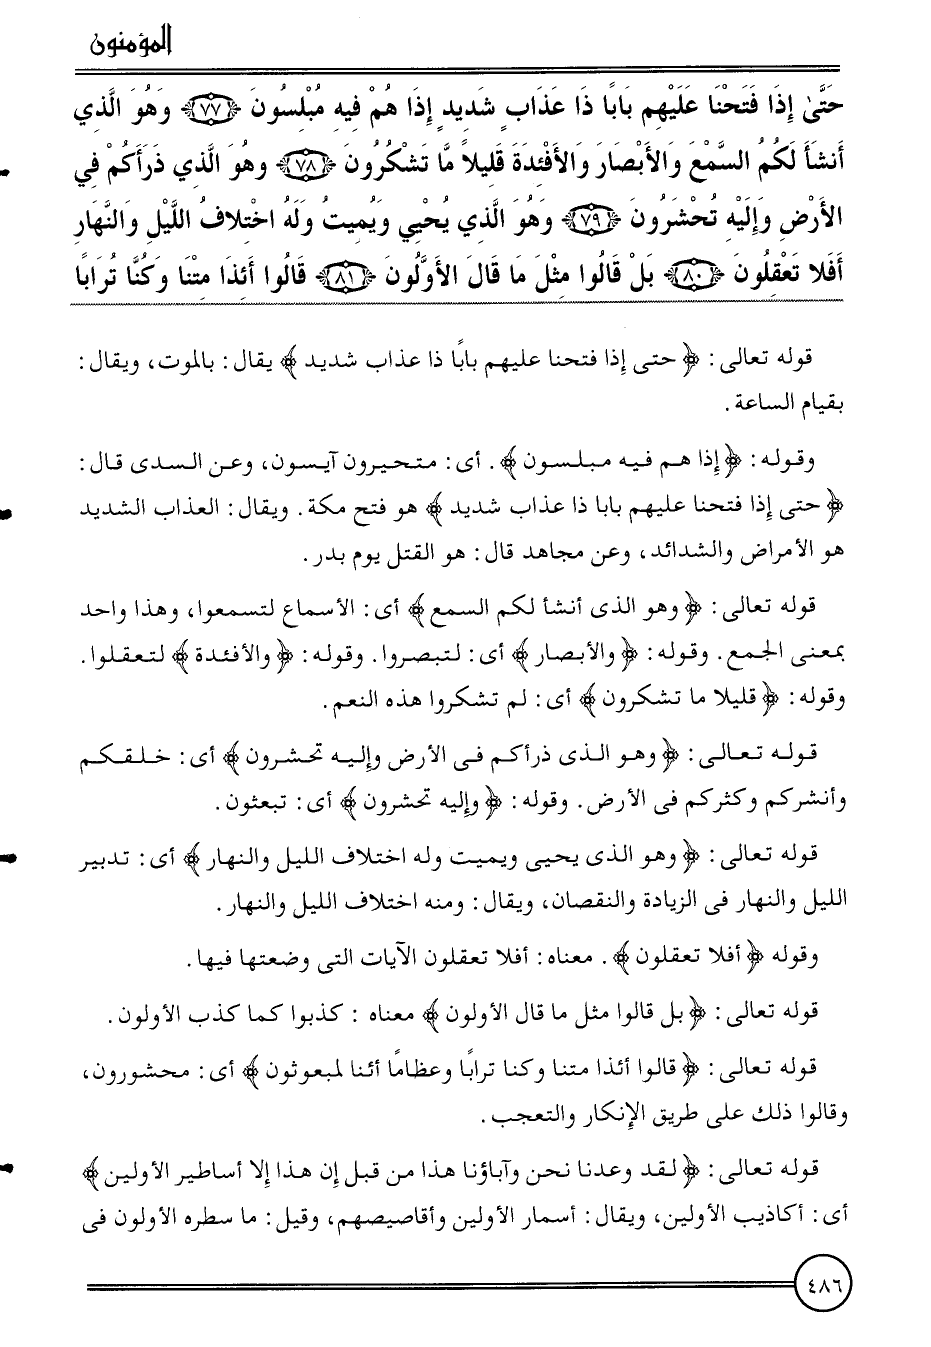 المؤمنون
حَتَّىٰ إِذَا فَتَحْنَا عَلَيْهِم بَابًا ذَا عَذَابٍ شَدِيدٍ إِذَا هُمْ فِيهِ مُبْلِسُونَ ﴿٧٧﴾ وَهُوَ الَّذِي
أَنشَأَ لَكُمُ السَّمْعَ وَالأَبْصَارَ وَالأَفْئِدَةَ قَلِيلاً مَّا تَشْكُرُونَ ﴿٧٨﴾ وَهُوَ الَّذِي ذَرَأَكُمْ فِي
الأَرْضِ وَإِلَيْهِ تُحْشَرُونَ ﴿٧٩﴾ وَهُوَ الَّذِي يُحْيِي وَيُمِيتُ وَلَهُ اخْتِلافُ اللَّيْلِ وَالنَّهَارِ
أَفَلا تَعْقِلُونَ ﴿٨٠﴾ بَلْ قَالُوا مِثْلَ مَا قَالَ الأَوَّلُونَ ﴿٨١﴾ قَالُوا أَئِذَا مِتْنَا وَكُنَّا تُرَابًا
قوله تعالى: ﴿حتى إذا فتحنا عليهم بابًا ذا عذاب شديد﴾ يقال: بالموت، ويقال:
بقيام الساعة.
وقوله: ﴿إذا هم فيه مبلسون﴾. أى: متحيرون آيسون، وعن السدى قال:
﴿حتى إذا فتحنا عليهم بابا ذا عذاب شديد﴾ هو فتح مكة. ويقال: العذاب الشديد
هو الأمراض والشدائد، وعن مجاهد قال: هو القتل يوم بدر.
قوله تعالى: ﴿وهو الذى أنشأ لكم السمع﴾ أى: الأسماع لتسمعوا، وهذا واحد
بمعنى الجمع. وقوله: ﴿والأبصار﴾ أى: لتبصروا. وقوله: ﴿والأفئدة﴾ لتعقلوا.
وقوله: ﴿قليلا ما تشكرون﴾ أى: لم تشكروا هذه النعم.
قوله تعالى: ﴿وهو الذى ذرأكم فى الأرض وإليه تحشرون﴾ أى: خلقكم
وأنشركم وكثركم فى الأرض. وقوله: ﴿وإليه تحشرون﴾ أى: تبعثون.
قوله تعالى: ﴿وهو الذى يحيى ويميت وله اختلاف الليل والنهار﴾ أى: تدبير
الليل والنهار فى الزيادة والنقصان، ويقال: ومنه اختلاف الليل والنهار.
وقوله ﴿أفلا تعقلون﴾. معناه: أفلا تعقلون الآيات التى وضعتها فيها.
قوله تعالى: ﴿بل قالوا مثل ما قال الأولون﴾ معناه : كذبوا كما كذب الأولون.
قوله تعالى: ﴿قالوا أئذا متنا وكنا ترابًا وعظامًا أئنا لمبعوثون﴾ أى: محشورون،
وقالوا ذلك على طريق الإنكار والتعجب.
قوله تعالى: ﴿لقد وعدنا نحن وآباؤنا هذا من قبل إن هذا إلا أساطير الأولين﴾
أى: أكاذيب الأولين، ويقال: أسمار الأولين وأقاصيصهم، وقيل: ما سطره الأولون فى
٤٨٦